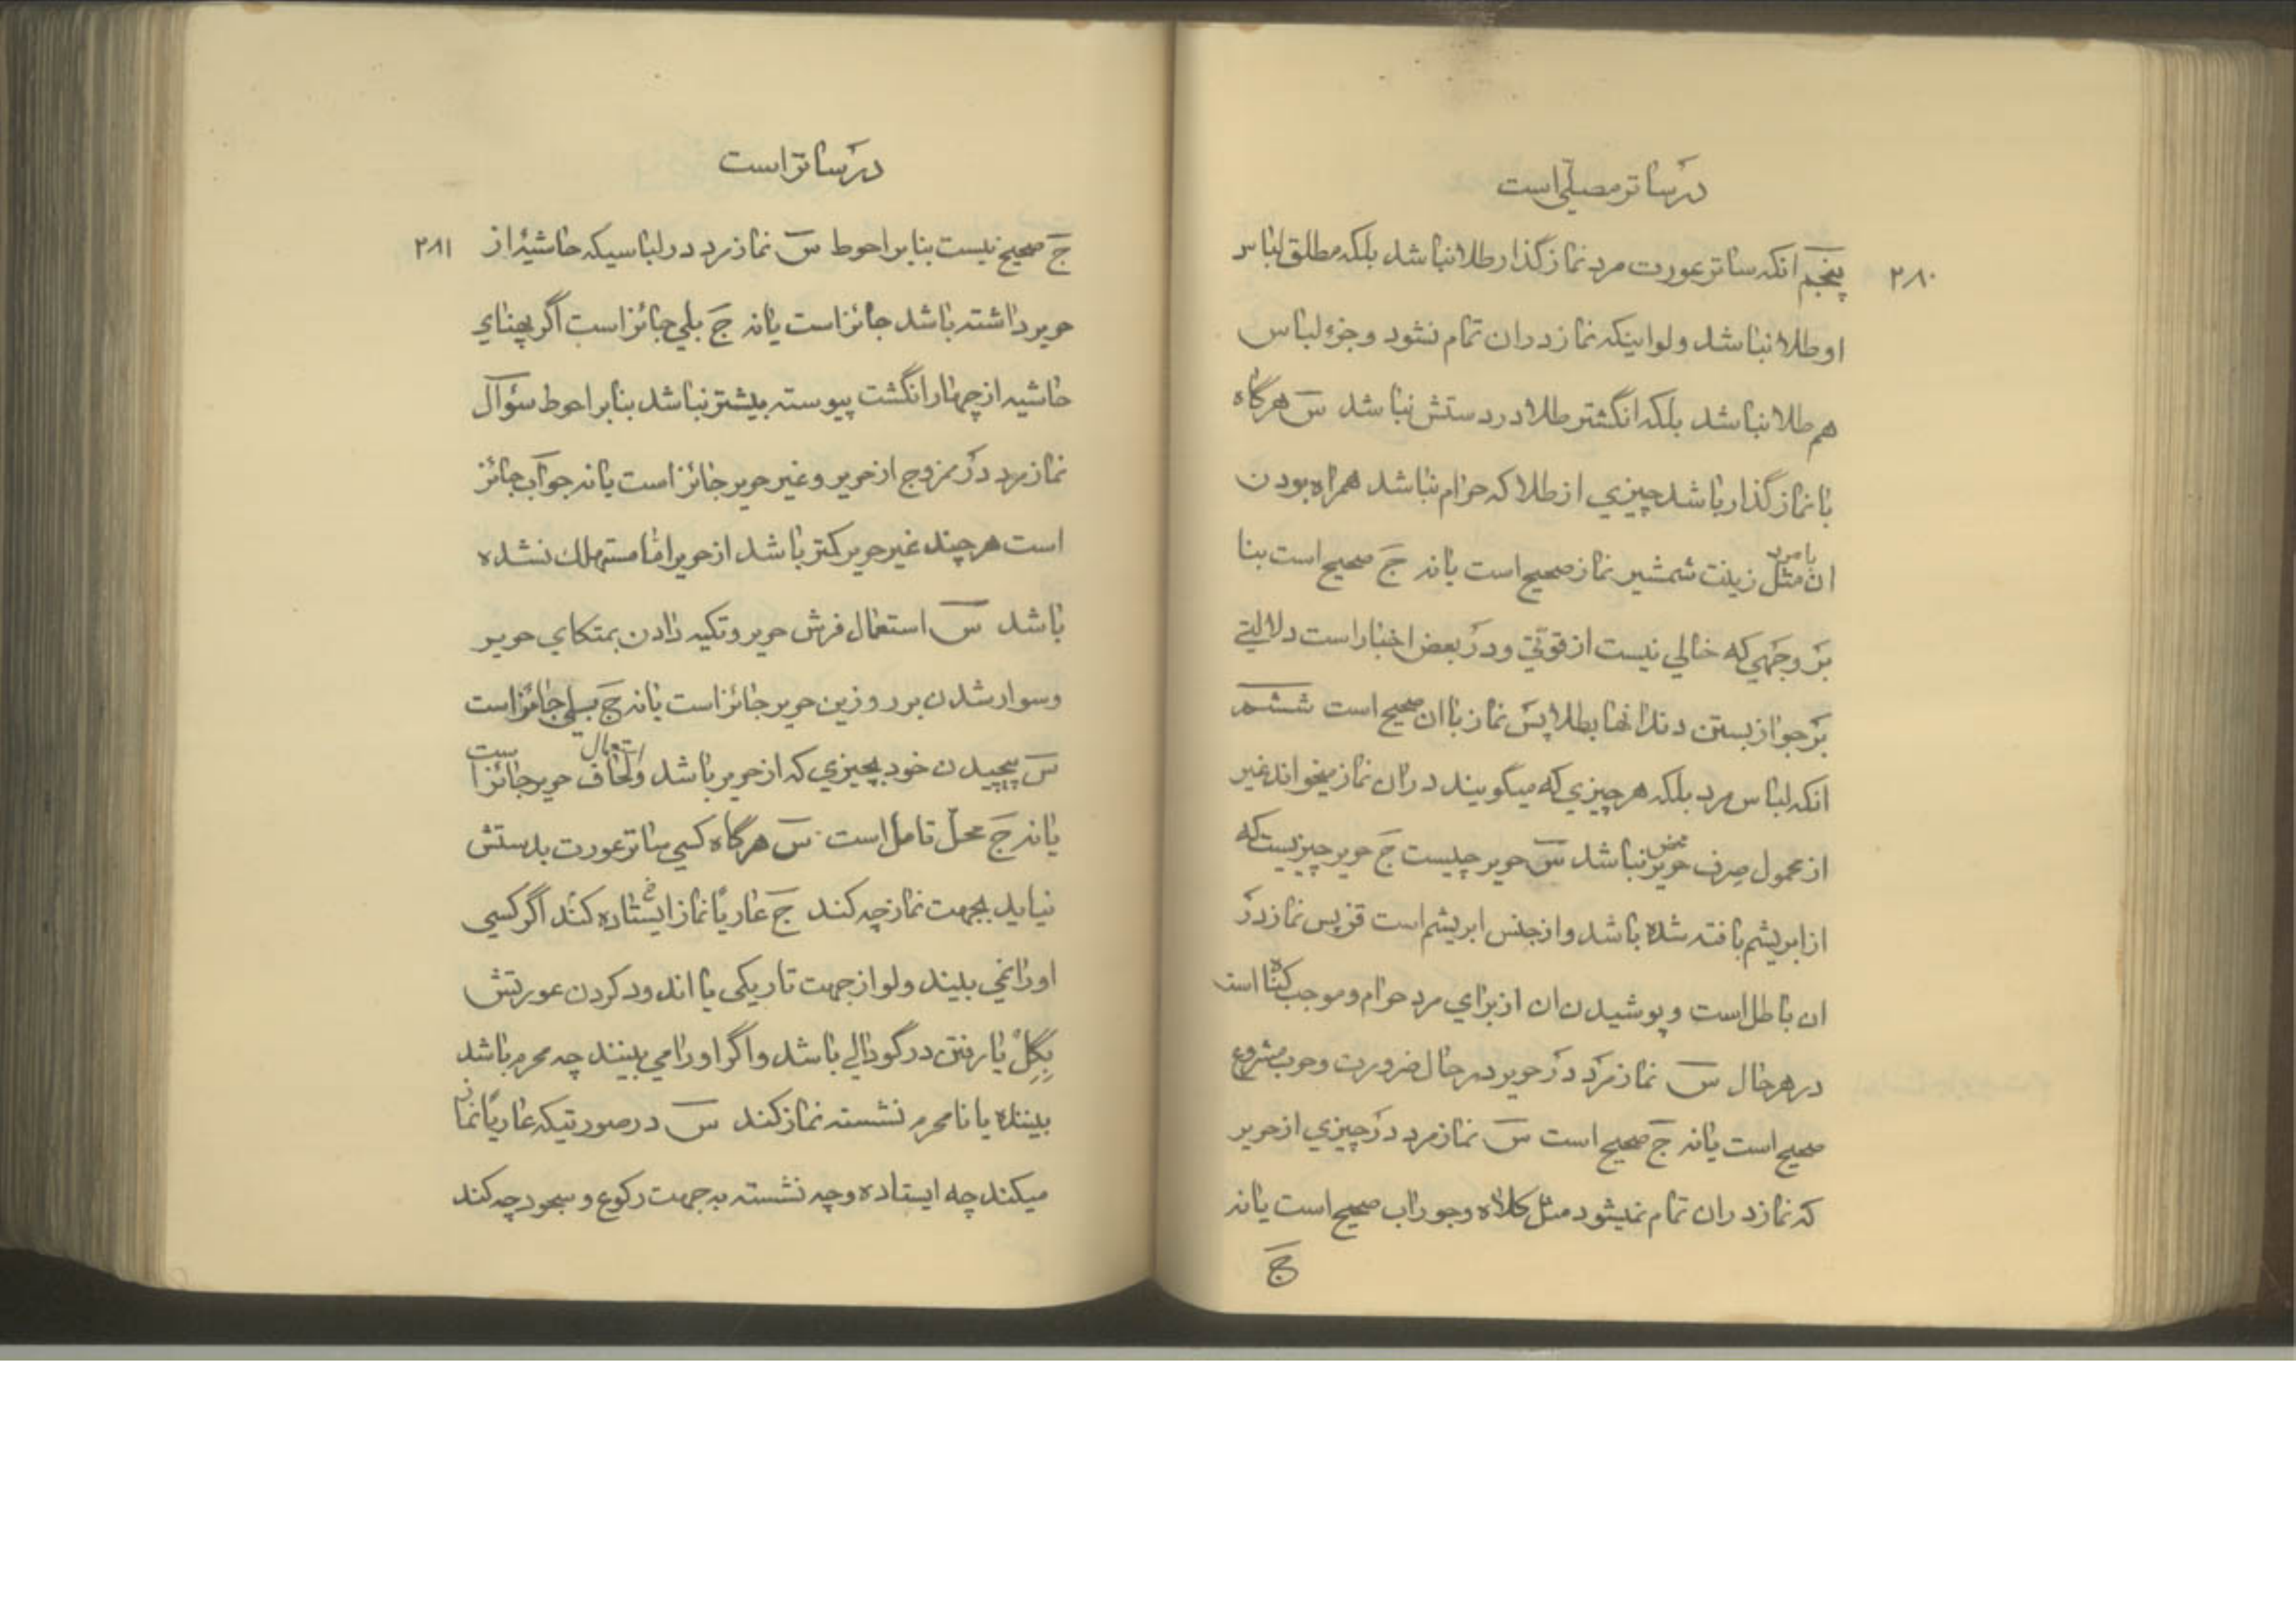 در ساتر مصلّی است
۲۸۰
پنجم انکه ساتر عورت مرد نماز گذار طلا نباشد بلکه مطلق لباس
او طلا نباشد ولو اینکه نماز در ان تمام نشود و جزء لباس
هم طلا نباشد بلکه انگشتر طلا در دستش نباشد س هرگاه
با نماز گذار باشد چیزی از طلا که حرام نباشد همراه بودن
ان با مرد مثل زینت شمشیر نماز صحیح است یا نه ج صحیح است بنا
بر وجهی که خالی نیست از قوّتی و در بعض اخبار است دلالتی
بر جواز بستن دندانها بطلا پس نماز با ان صحیح است ششم
انکه لباس مرد بلکه هر چیزی که میگویند در ان نماز میخواند غیر
از محمول صرف حریر محض نباشد س حریر چیست ج حریر چیزیست که
از ابریشم بافته شده باشد و از جنس ابریشم است قز پس نماز در
ان باطل است و پوشیدن ان از برای مرد حرام و موجب گناه است
در هر حال س نماز مرد در حریر در حال ضرورت و حرب مشروع
صحیح است یا نه ج صحیح است س نماز مرد در چیزی از حریر
که نماز در ان تمام نمیشود مثل کلاه و جوراب صحیح است یا نه
ج
در ساتر است
۲۸۱
ج صحیح نیست بنا بر احوط س نماز مرد در لباسیکه حاشیهٔ از
حریر داشته باشد جائز است یا نه ج بلی جائز است اگر پهنای
حاشیه از چهار انگشت پیوسته بیشتر نباشد بنا بر احوط سؤال
نماز مرد در ممزوج از حریر و غیر حریر جائز است یا نه جواب جائز
است هر چند غیر حریر کمتر باشد از حریر امّا مستهلک نشده
باشد س استعمال فرش حریر و تکیه دادن بمتکای حریر
و سوار شدن بر رو زین حریر جائز است یا نه ج بلی جائز است
س پیچیدن خود بچیزی که از حریر باشد و استعمال لحاف حریر جائز است
یا نه ج محلّ تامل است س هرگاه کسی ساتر عورت بدستش
نیاید بجهت نماز چه کند ج عاریًا نماز ایستاده کند اگر کسی
او را نمی بیند ولو از جهت تاریکی یا اندود کردن عورتش
بگِلْ یا رفتن در گودالی باشد و اگر او را می بینند چه محرم باشد
بیننده یا نامحرم نشسته نماز کند س در صورتیکه عاریًا نماز
میکند چه ایستاده و چه نشسته به جهت رکوع و سجود چه کند